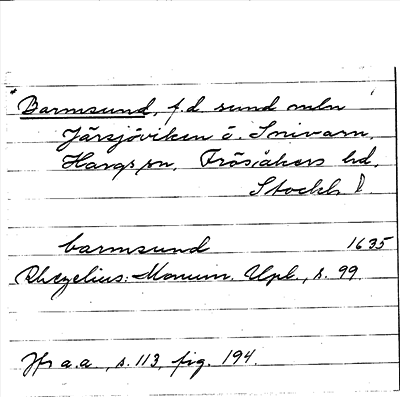 *Barmsund, f.d. sund mln
Järsjöviken o.
Hargs sn, Frösåkers hd,
Stockh. l
barmsund 1635
Rhezelius: Monum. Upl., s. 99
Jfr a.a., s. 113, fig. 194.